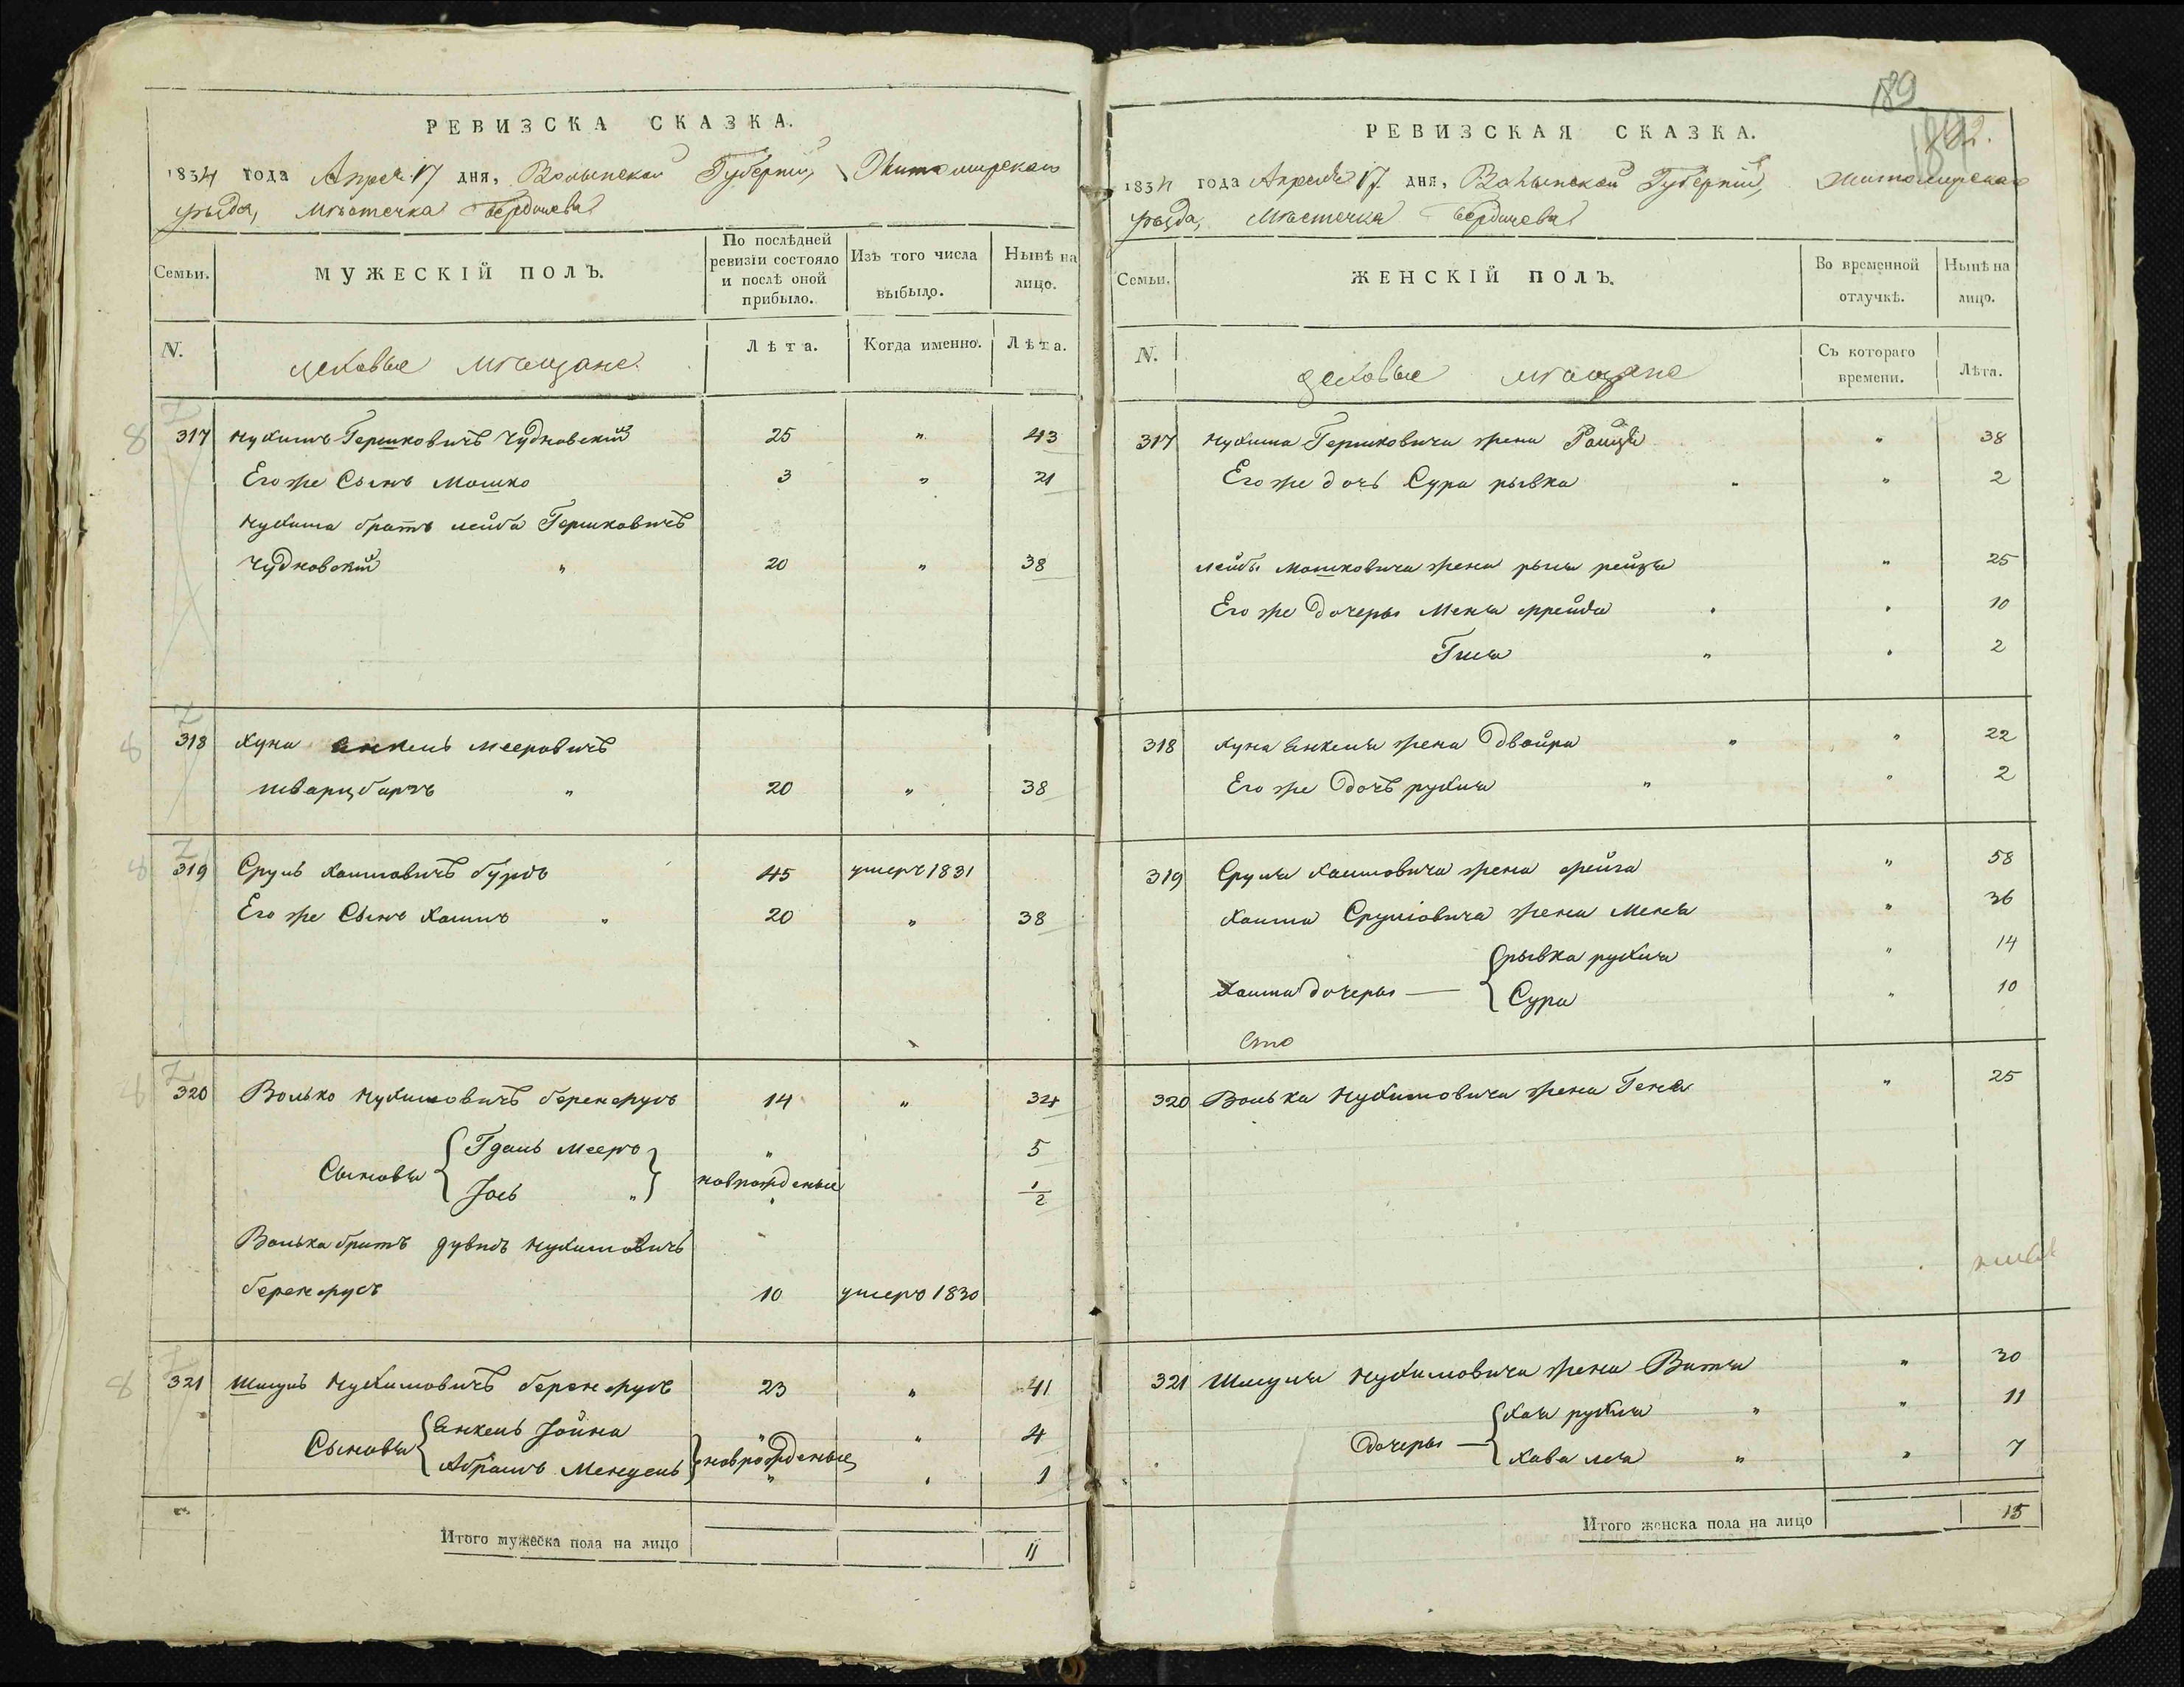 РЕВИЗСКА СКАЗКА.
1834 года Апреля 17 дня, Волынской Губернии, Житомирскаго
уезда, Мѣстечка Бердичева
Семьи.
МУЖЕСКІЙ ПОЛЪ.
По послѣдней ревизіи состояло и послѣ оной прибыло.
Изъ того числа выбыло.
Нынѣ на лицо.
N.
цеховые мѣщане
Лѣта.
Когда именно.
Лѣта.
317 Нухимъ Гершковичъ Чудновскій 25 " 43
Его же Сынъ Мошко 3 " 21
Нухима братъ лейба Гершковичъ
Чудновскій " 20 " 38
318 Хуна Янкель Мееровичъ
шварцбургъ " 20 " 38
319 Сруль Хаимовичъ бурдъ 45 умеръ 1831
Его же Сынъ Хаимъ " 20 " 38
320 Волько Нухимовичъ беренфусъ 14 " 32
Сыновья Гдаль Мееръ " 5
Іось " новрожденые 1/2
Волька братъ дувидъ Нухимовичъ
беренфусъ 10 умеръ 1830
321 Шмуль Нухимовичъ беренфусъ 23 " 41
Сыновья Янкель Іойна " " 4
Абрамъ Мендель новрожденые " 1
Итого мужеска пола на лицо 11
189
РЕВИЗСКАЯ СКАЗКА.
1834 года Апреля 17 дня, Волынской Губерніи, Житомирскаго
уезда, Мѣстечка Бердичева
Семьи.
ЖЕНСКІЙ ПОЛЪ.
Во временной отлучкѣ.
Нынѣ на лицо.
N.
цеховые мѣщане
Съ котораго времени.
Лѣта.
317 Нухима Гершковича жена Раиця " 38
Его же дочь Сура рывка " " 2
лейбы Мошковича жена рыся рейзя " 25
Его же Дочеры Меня фрейда " " 10
Гися " " 2
318 Хуна Янкеля жена Двойра " " 22
Его же Дочъ рухля " " 2
319 Сруля Хаимовича жена фейга " 58
Хаима Срулiовича жена Меня " 36
Хаима дочеры — рывка рухля " 14
Сура " 10
320 Волька Нухимовича жена Геня " 25
321 Шмуля Нухимовича жена Витя " 30
Дочеры — Хая рухля " " 11
Хава лея " " 7
Итого женска пола на лицо 15